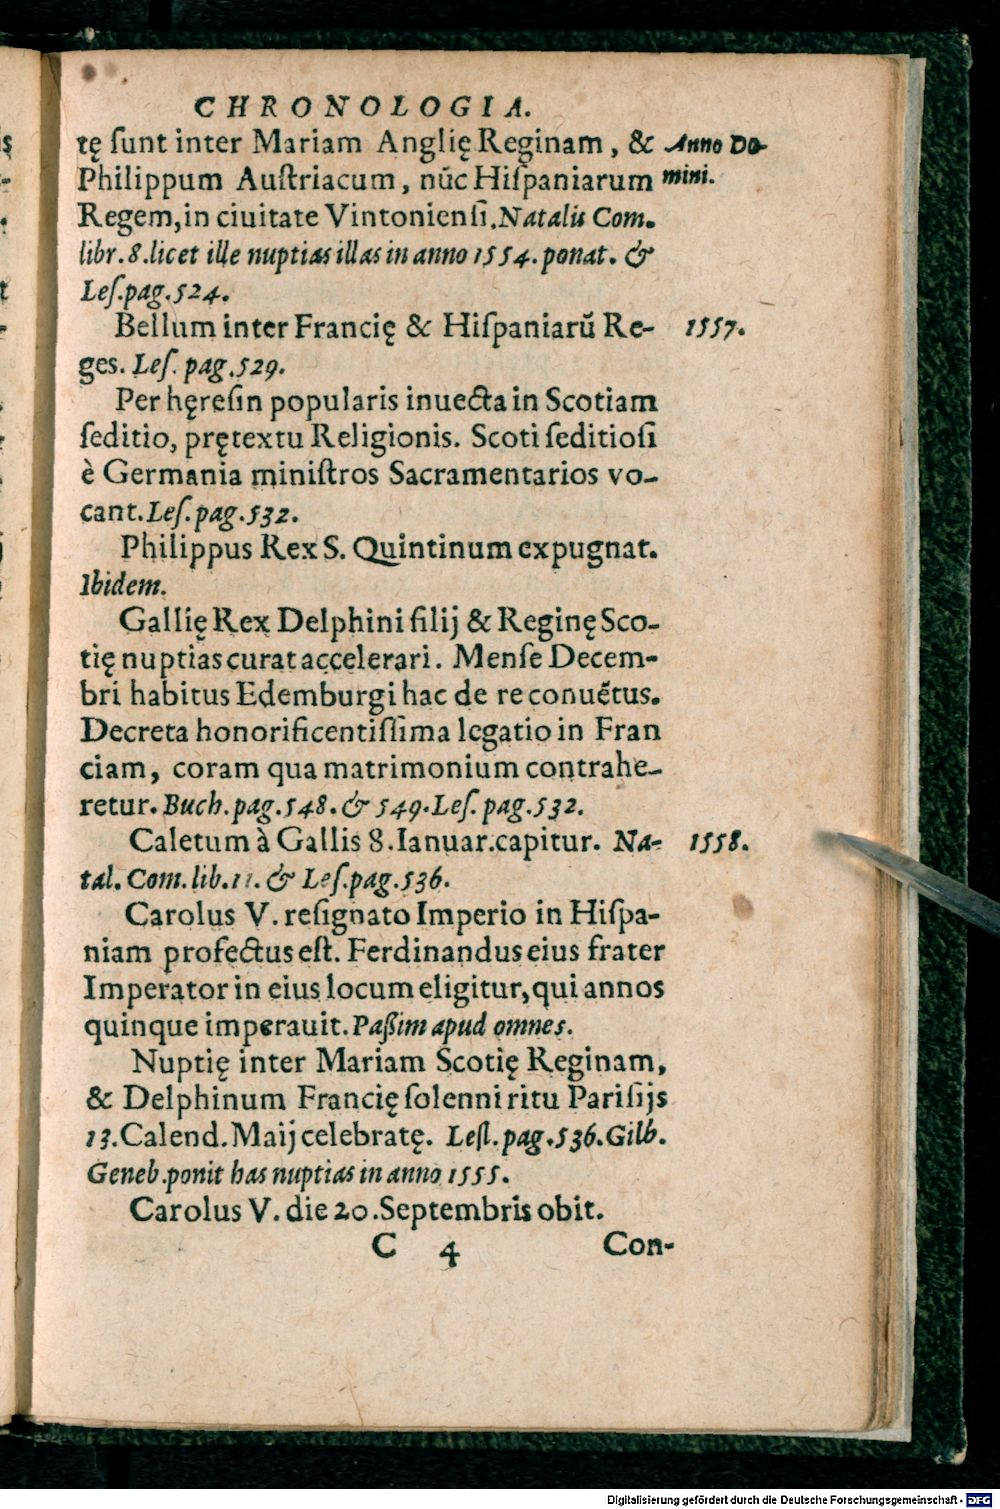 CHRONOLOGIA.
tę ſunt inter Mariam Anglię Reginam, & Anno Do-
Philippum Auſtriacum, nūc Hiſpaniarum mini.
Regem, in ciuitate Vintonienſi. Natalis Com.
libr. 8. licet ille nuptias illas in anno 1554. ponat. &
Leſ. pag. 524.
Bellum inter Francię & Hiſpaniarū Re- 1557.
ges. Leſ. pag. 529.
Per hęreſin popularis inuecta in Scotiam
ſeditio, pretextu Religionis. Scoti ſeditioſi
è Germania miniſtros Sacramentarios vo-
cant. Leſ. pag. 532.
Philippus Rex S. Quintinum expugnat.
Ibidem.
Gallię Rex Delphini filij & Reginę Sco-
tię nuptias curat accelerari. Menſe Decem-
bri habitus Edemburgi hac de re conuētus.
Decreta honorificentiſſima legatio in Fran
ciam, coram qua matrimonium contrahe-
retur. Buch. pag. 548. & 549. Leſ. pag. 532.
Caletum à Gallis 8. Ianuar. capitur. Na- 1558.
tal. Com. lib. 11. & Leſ. pag. 536.
Carolus V. reſignato Imperio in Hiſpa-
niam profectus eſt. Ferdinandus eius frater
Imperator in eius locum eligitur, qui annos
quinque imperauit. Paßim apud omnes.
Nuptię inter Mariam Scotię Reginam,
& Delphinum Francię ſolenni ritu Pariſijs
13. Calend. Maij celebratę. Leſl. pag. 536. Gilb.
Geneb. ponit has nuptias in anno 1555.
Carolus V. die 20. Septembris obit.
C 4 Con-
Digitalisierung gefördert durch die Deutsche Forschungsgemeinschaft - DFG